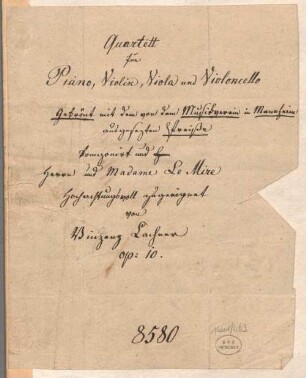 Quartett
für
Piano, Violin, Viola und Violoncello
Gekrönt mit dem von dem Musikverein in Mannheim
ausgesetzten Preiße
komponirt und
Herrn und Madame Le Mire
Hochachtungsvoll zugeeignet
von
Vinzenz Lachner
op: 10.
8580